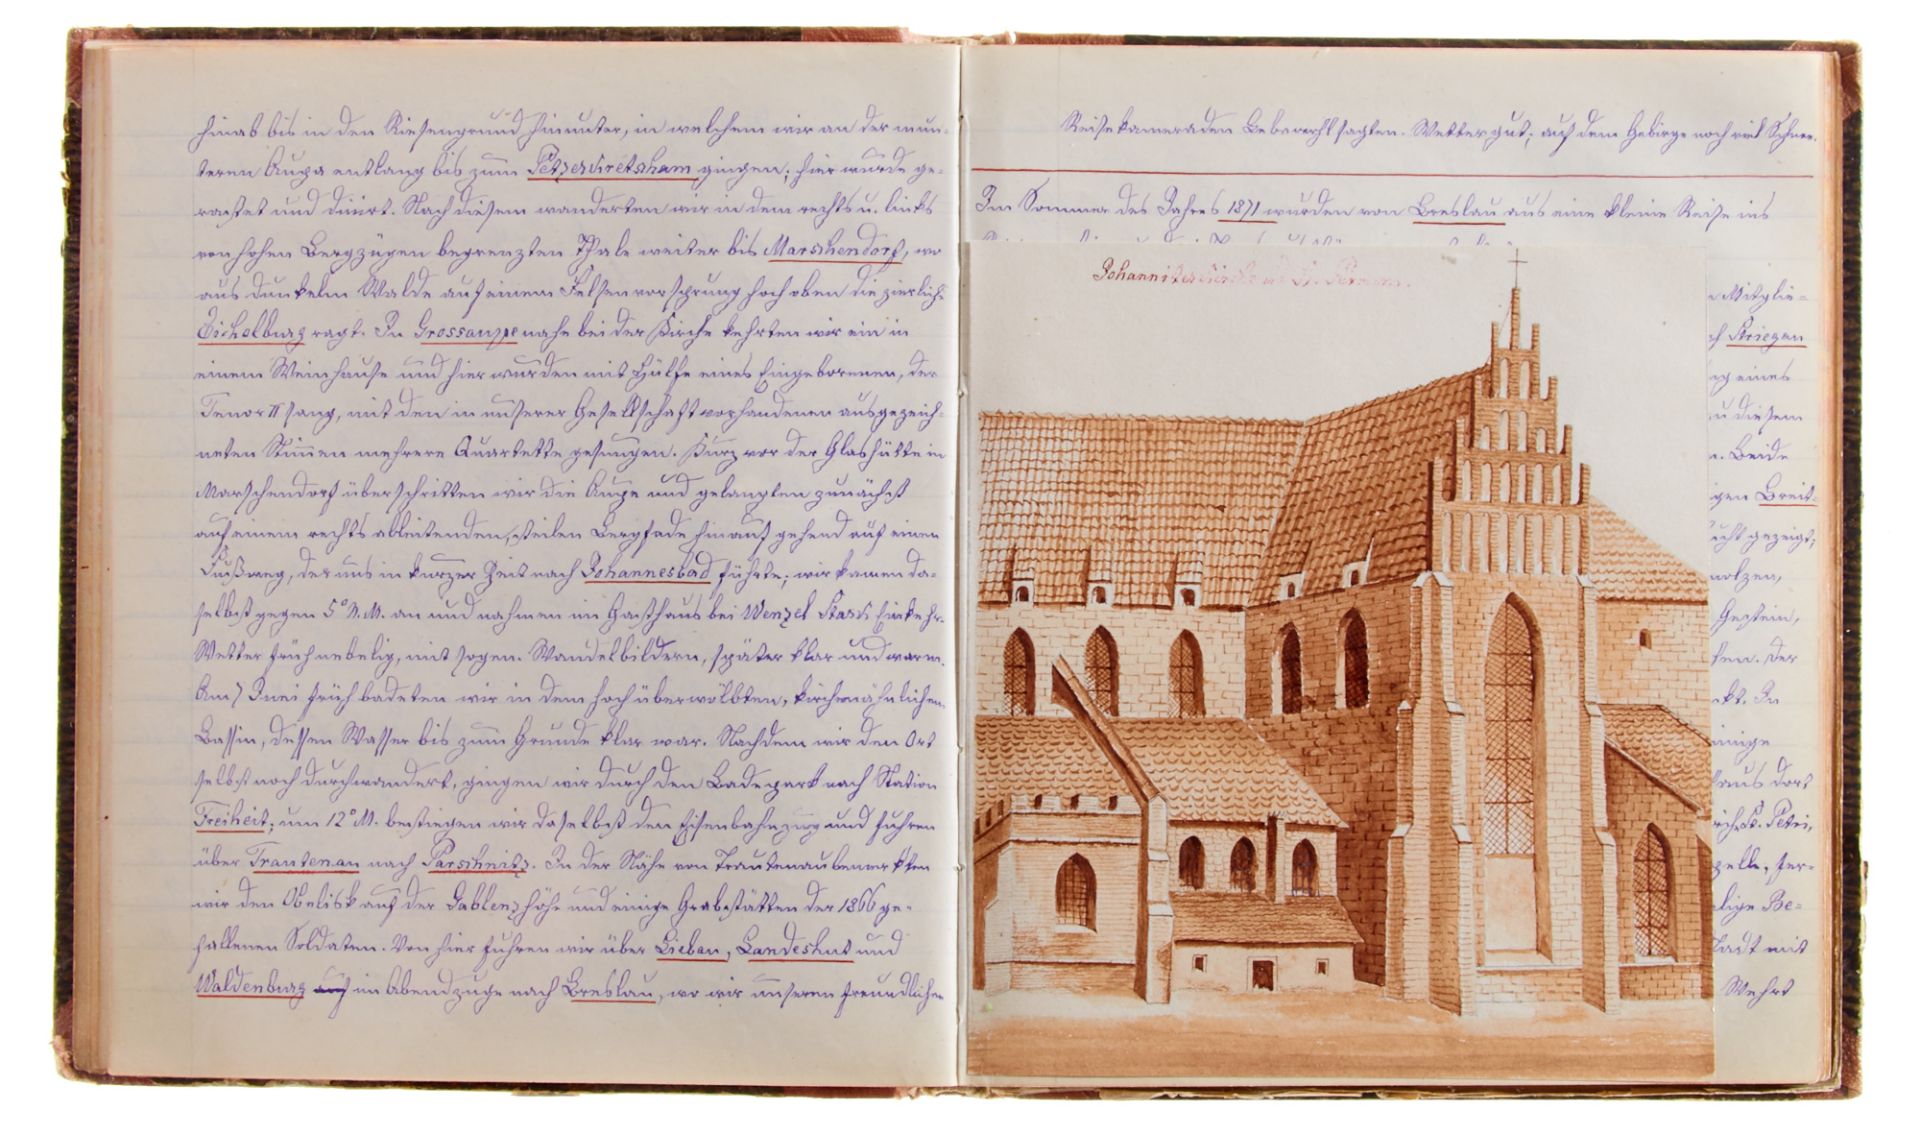 hinab bis in den Riesengrund hinunter, in welchem wir an der mun-
teren Aupa entlang bis zum Petzerkretscham gingen; hier wurde ge-
rastet und dinirt. Nach diesem wanderten wir in dem rechts u. links
von hohen Bergzügen begrenzten Thale weiter bis Marschendorf, wo
aus dunkelm Walde auf einem Felsenvorsprung hoch oben die zierliche
Eichelburg ragt. In Grossaupe nahe bei der Kirche kehrten wir ein in
einem Weinhause und hier wurden mit Hülfe eines Eingeborenen, der
Tenor II sang, mit den in unserer Gesellschaft vorhandenen ausgezeich-
neten Stimmen mehrere Quartette gesungen. Kurz vor der Glashütte in
Marschendorf überschritten wir die Aupe und gelangten zunächst
auf einem rechts ableitenden, steilen Bergpfade hinauf gehend auf einen
Fußweg, der uns in kurzer Zeit nach Johannesbad führte; wir kamen da-
selbst gegen 5° N.M. an und nahmen im Gasthaus bei Wenzel Einkehr.
Wetter früh nebelig, mit sogen. Wandelbildern, später klar und warm.
Am 7 Juni früh badeten wir in dem hoch überwölbten, kirchenähnlichen
Bassin, dessen Wasser bis zum Grunde klar war. Nachdem wir den Ort
selbst noch durchwandert, gingen wir durch den Badepark nach Station
Freiheit; um 12° M. bestiegen wir daselbst den Eisenbahnzug und fuhren
über Trautenau nach Parschnitz. In der Nähe von Trautenau bemerkten
wir den Obelisk auf der Gablenzhöhe und einige Grabstätten der 1866 ge-
fallenen Soldaten. Von hier fuhren wir über Liebau, Landeshut und
Waldenburg im Abendzuge nach Breslau, wo wir unseren freundlichen
Reisekameraden Lebewohl sagten. Wetter gut; auf dem Gebirge noch viel Schnee.
Im Sommer des Jahres 1871 wurden von Breslau aus eine kleine Reise ins
Johanniterkirche
Mitglie-
Striegau
eines
diesem
Beide
Breit-
gezeigt;
Gestein,
Der
In
einige
aus dort
St. Petri,
Be-
mit
Wehrt